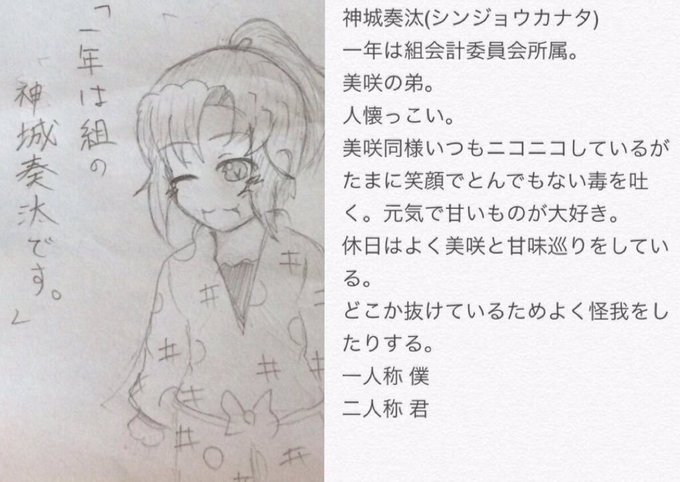 「一年は組の
神城奏汰です。」
神城奏汰(シンジョウカナタ)
一年は組会計委員会所属。
美咲の弟。
人懐っこい。
美咲同様いつもニコニコしているが
たまに笑顔でとんでもない毒を吐
く。元気で甘いものが大好き。
休日はよく美咲と甘味巡りをしてい
る。
どこか抜けているためよく怪我をし
たりする。
一人称 僕
二人称 君